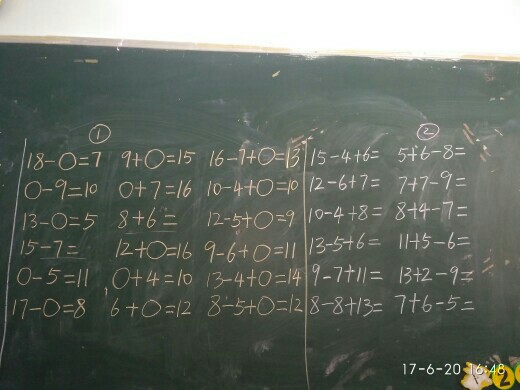 ① ②
18-○=7 9+○=15 16-7+○=13 15-4+6= 5+6-8=
○-9=10 ○+7=16 10-4+○=10 12-6+7= 7+7-9=
13-○=5 8+6= 12-5+○=9 10-4+8= 8+4-7=
15-7= 12+○=16 9-6+○=11 13-5+6= 11+5-6=
○-5=11 ○+4=10 13-4+○=14 9-7+11= 13+2-9=
17-○=8 6+○=12 8-5+○=12 8-8+13= 7+6-5=
17-6-20 16:48